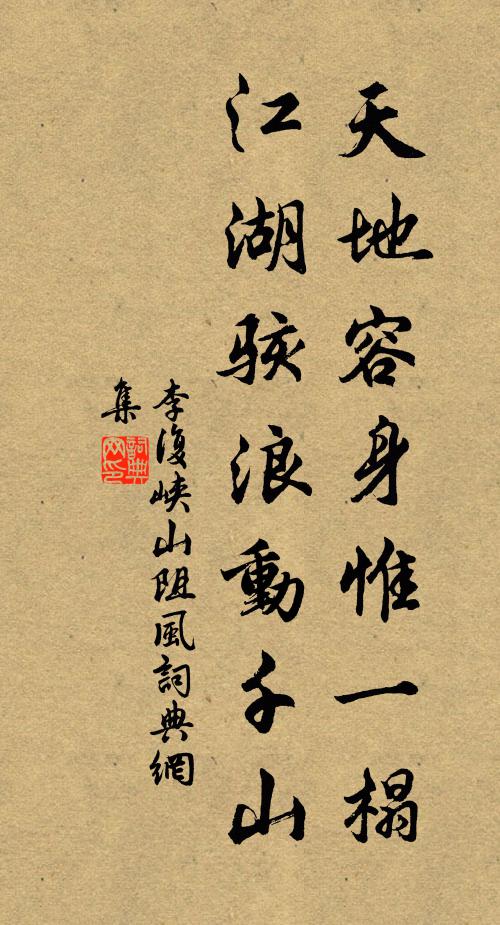 天地容身惟一榻
江湖駭浪動千山
李復峽山阻風詞典網
集
詞典
网印